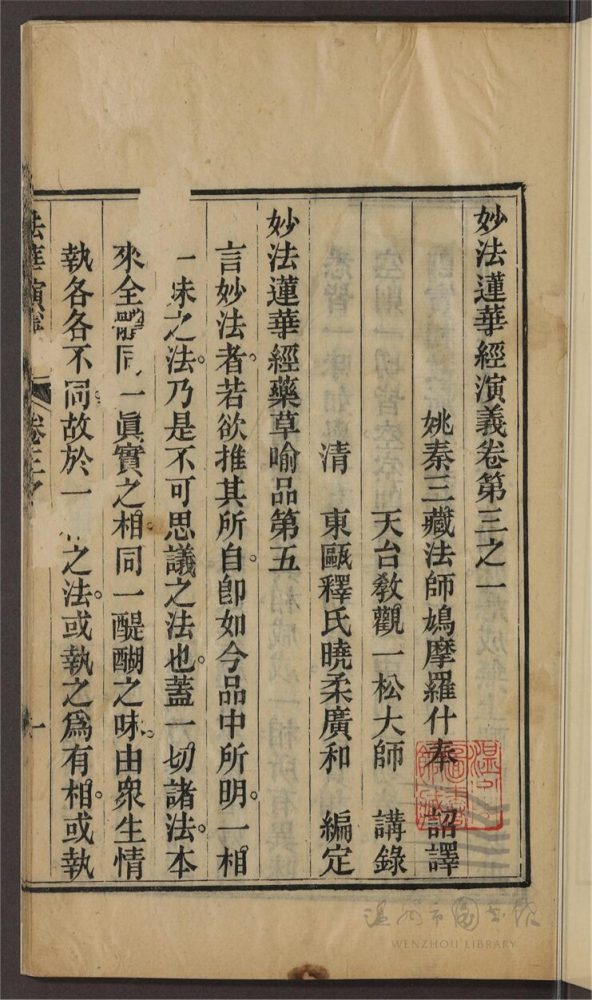 妙法蓮華經演義卷第三之一
姚秦三藏法師鳩摩羅什奉 詔譯
天台教觀一松大師 講錄
清 東甌釋氏曉柔廣和 編定
妙法蓮華經藥草喻品第五
言妙法者若欲推其所自。卽如今品中所明。一相
一味之法。乃是不可思議之法也。蓋一切諸法。本
來全體同一眞實之相。同一醍醐之味。由衆生情
執各各不同。故於一之法。或執之爲有相。或執
法華演義 卷三之 一
溫州市圖書館
WENZHOU LIBRARY